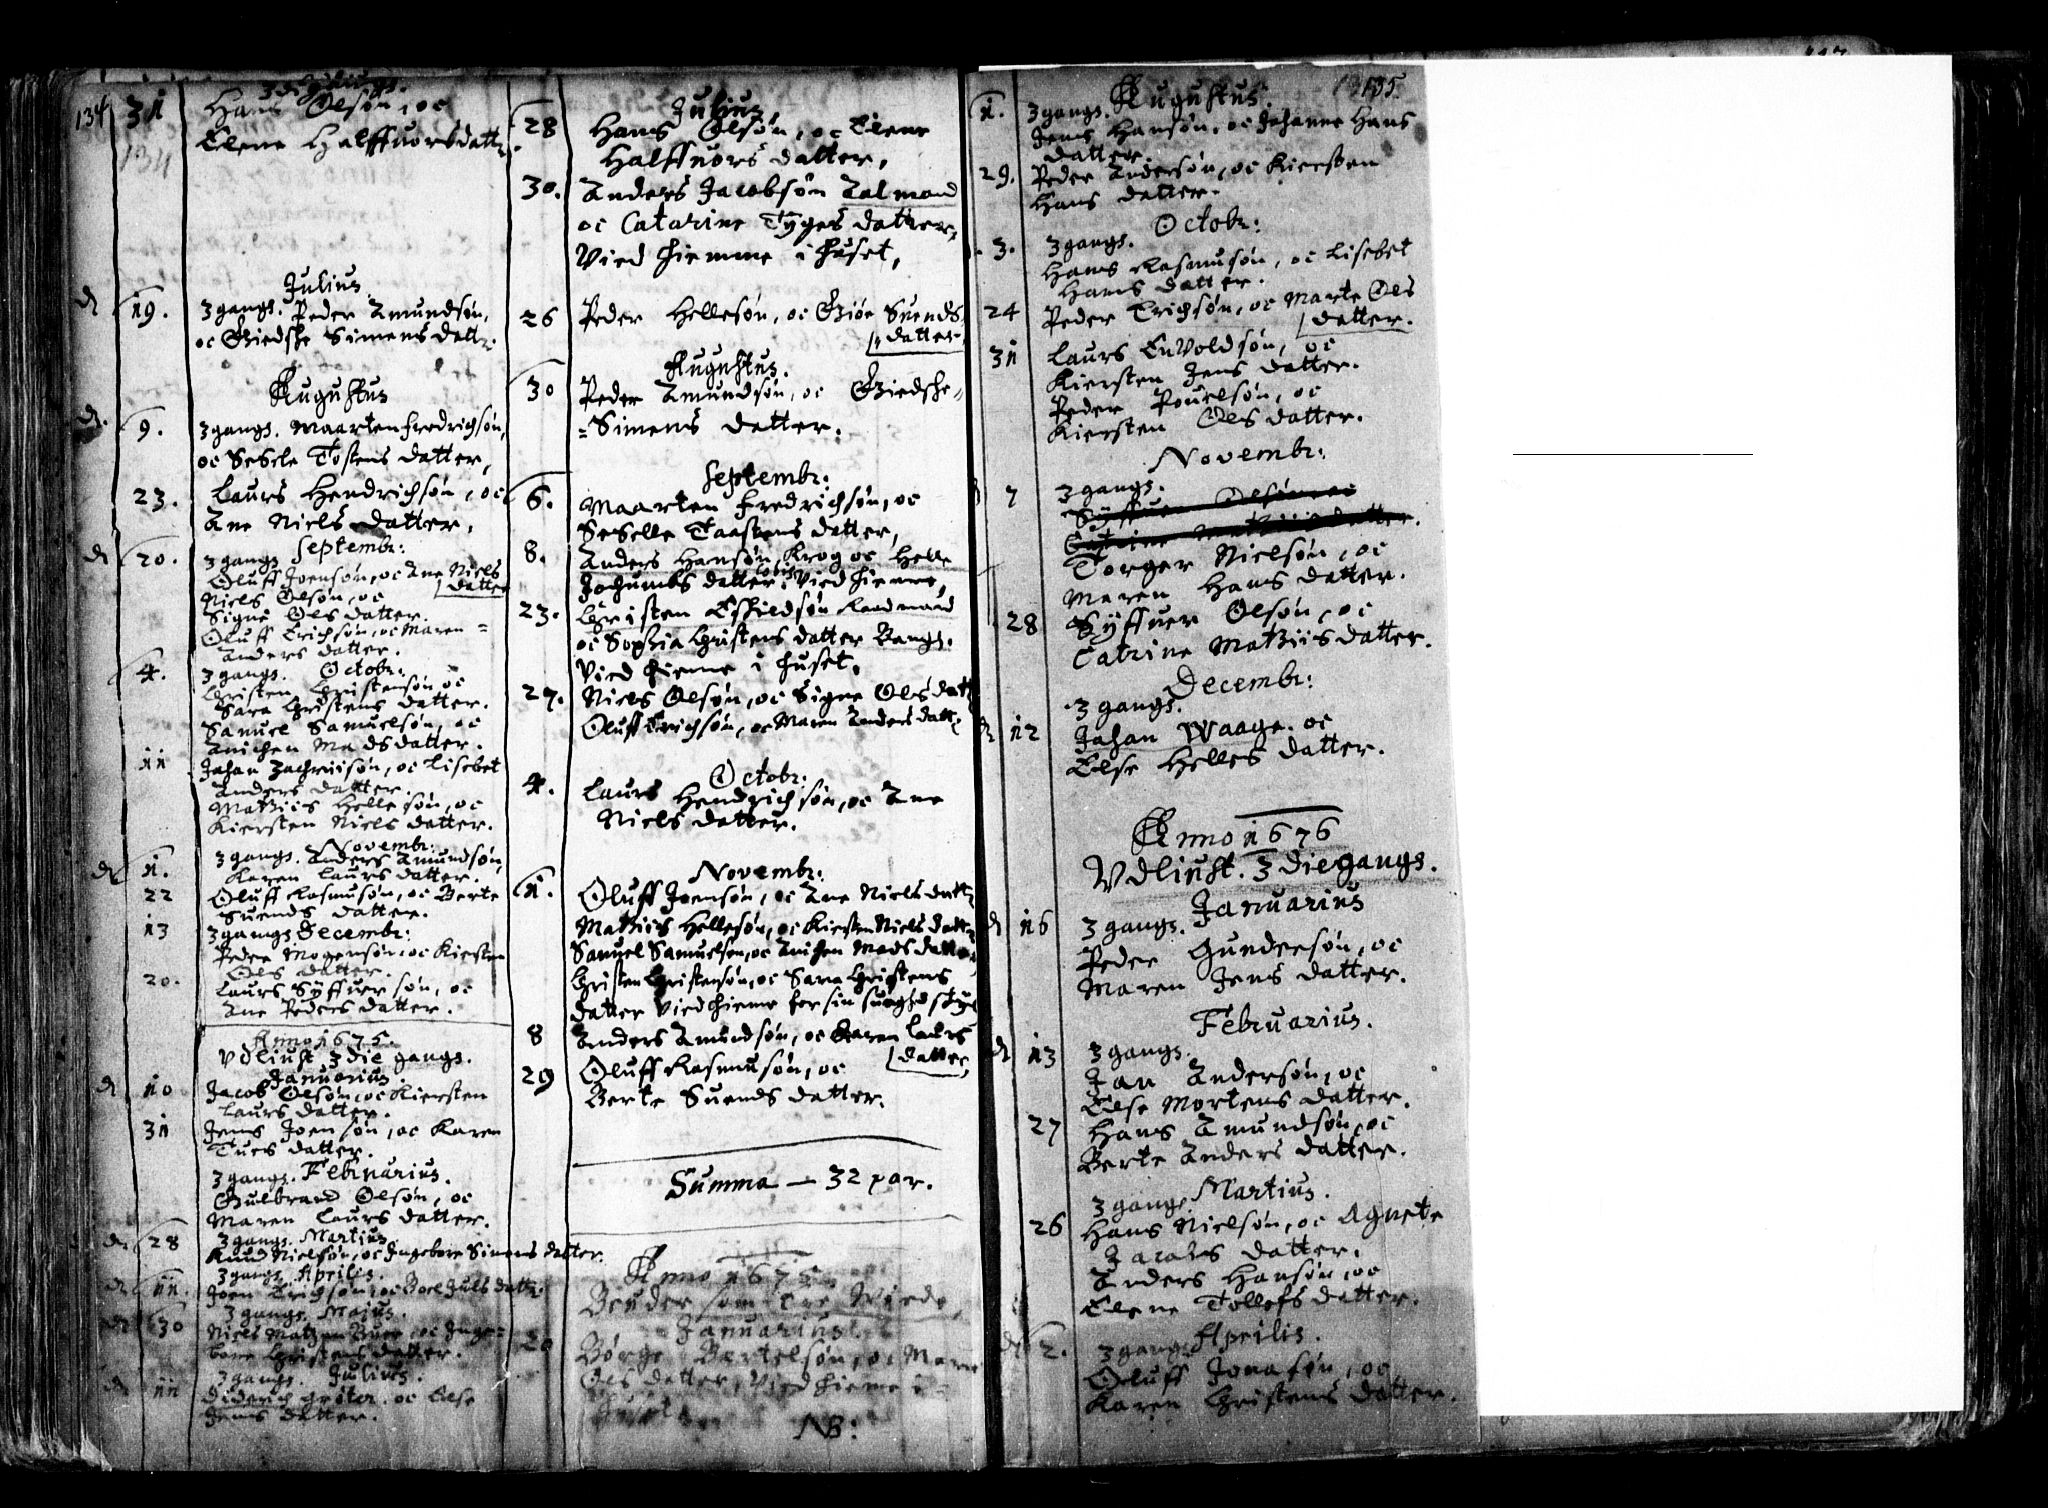 134
134
3 die gangs.
31 Hans Olsøn, oc
Elene Halffuorsdatt:
Julius.
19. 3 gangs. Peder Amundsøn,
oc Giedske Simens datt:
Augustus
9. 3 gangs. Maarten Fredrichsøn,
oc Sesele Tostens datter,
23. Laurs Hendrichsøn, oc
Ane Niels datter,
Septembr:
20. 3 gangs
Oluff Joensøn, oc Ane Niels
datter
Niels Olsøn, oc
Signe Ols datter.
Oluff Erichsøn, oc Maren =
Anders datter.
Octobr:
4. 3 gangs.
Christen Christensøn oc
Sara Christens datter.
Samuel Samuelsøn, oc
Anichen Mads datter.
11 Johan Zachriisøn, oc Lisebet
Anders datter.
Mathies Hellesøn, oc
Kiersten Niels datter.
Novembr:
1. 3 gangs. Anders Amundsøn,
Karen Laurs datter.
22 Oluff Rasmusøn, oc Berte
Suends datter.
13 3 gangs Decembr:
Peder Mogensøn, oc Kiersten
Ols datter.
20. Laurs Syffuersøn, oc
Ane Peders datter.
Anno 1675.
Vdliust 3 die gangs.
Januarius
10 Jacob Olsøn, oc Kiersten
Laurs datter.
31 Jens Joensøn, oc Karen
Tues datter.
3 gangs. Februarius.
Gulbrand Olsøn, oc
Maren Laurs datter.
3 gangs. Martius.
28 Knud Nielsøn, oc Ingebore Simens datter.
3 gangs Aprilis.
11. Joen Erichsøn, oc Boel Juls datt:
3 gangs. Maius.
30 Niels Matzøn Buer, oc Inge=
bore Christens datter.
3 gangs. Julius.
11 Diderich Gröter. oc Else
Jens datter.
Julius,
28 Hans Olsøn, oc Elene
Halffuors datter,
30. Anders Jacobsøn Zalmand
oc Catarine Tyges datter,
Vied hiemme i huset,
26 Peder Hellesøn, oc Giøe Suends
datter
Augustus.
30 Peder Amundsøn, oc Giedske=
=Simens datter.
Septembr:
6. Maarten Fredrichsøn, oc
Seselle Taastens datter,
8. Anders Hansøn Krog oc Helle
Jochumbs datter, vied hieme,
23. Christen Eskildsøn Raadmand
oc Sophia Christens datter Bangs.
Vied hieme i huset,
27. Niels Olsøn, oc Signe Ols datt:
Oluff Erichsøn, oc Maren Anders datt:
Octobr:
4. Laurs Hendrichsøn, oc Ane
Niels datter.
Novembr:
1. Oluff Joensøn, oc Ane Niels datt:
Mathies Hellesøn, oc Kiersten Niels datt:
Samuel Samuelsøn, oc Anichen Mads datter
Christen Christensøn, oc Sara Christens
datter vied hieme for sin suaghed skyl
8 Anders Amundsøn, oc Karen Laurs
datter,
29 Oluff Rasmusøn, oc
Berte Suends datter.
Summa — 32 par.
Anno 1675.
Bruder som ere Viede,
Januarius.
20 Børge Bertelsøn, oc Maren
Ols datter, Vied hieme i=
huset
NB:
135.
Augustus.
1. 3 gangs.
Jens Hansøn, oc Johanne Hans
datter.
29. Peder Andersøn, oc Kiersten
Hans datter.
Octobr:
3. 3 gangs.
Hans Rasmusøn, oc Lisebet
Hans datter.
24 Peder Erichsøn, oc Marte Ols
datter.
31 Laurs EnVoldsøn, oc
Kiersten Jens datter.
Peder Pouelsøn, oc
Kiersten Ols datter.
Novembr:
7 3 gangs.
Syffuer Olsøn, oc
Catrine Mathiis datter.
Torger Nielsøn, oc
Maren Hans datter.
28 Syffuer Olsøn, oc
Catrine Mathiis datter.
Decembr:
3 gangs.
12 Johan Waage. oc
Else Helles datter.
Anno 1676
Vdliust. 3 die gangs.
Januarius
16 3 gangs.
Peder Gundersøn, oc
Maren Jens datter.
Februarius.
13 3 gangs.
Jan Andersøn, oc
Else Mortens datter.
27 Hans Amundsøn, oc
Berte Anders datter.
Martius.
3 gangs.
26 Hans Nielsøn, oc Agnete
Jacobs datter.
Anders Hansøn, oc
Elene Tollefs datter.
Aprilis.
2. 3 gangs
Oluff Jonasøn, oc
Karen Christens datter.